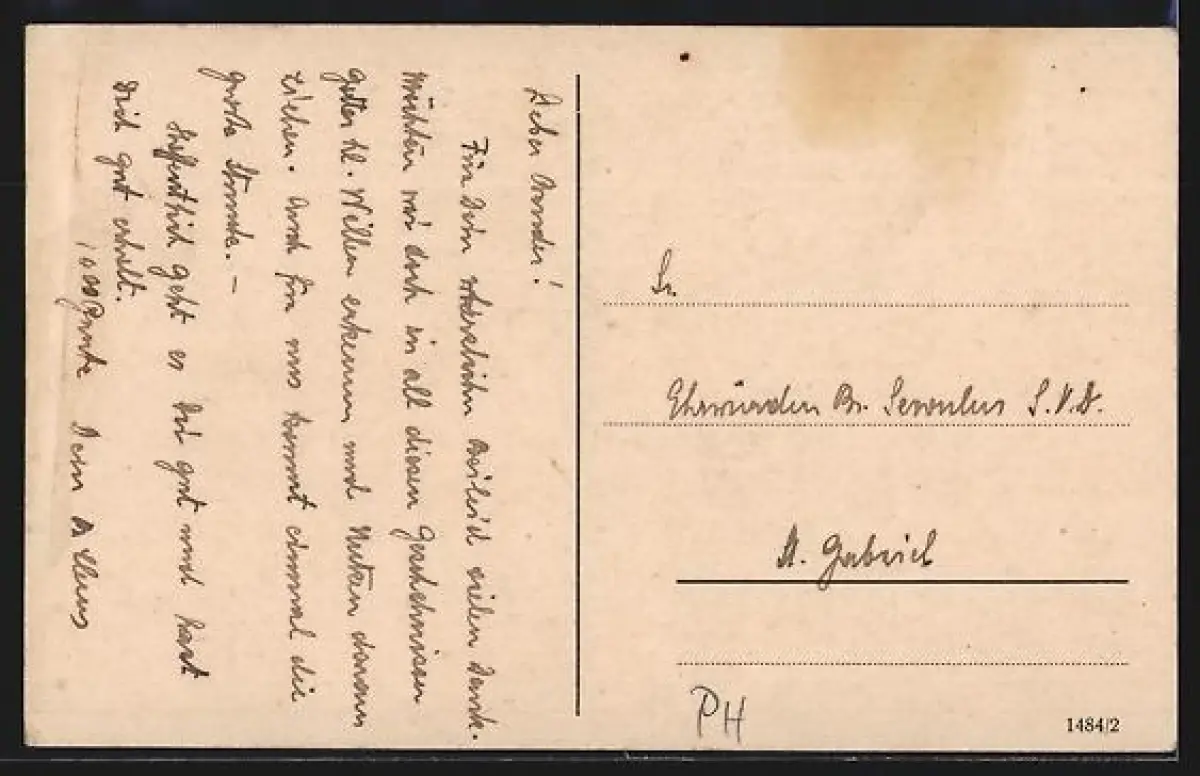 Lieber Bruder!
Für Dein herzliches Beileid vielen Dank.
Möchten wir doch in all diesen Geschehnissen
Gottes hl. Willen erkennen und Nutzen daraus
ziehen. Auch für uns kommt einmal die
große Stunde. –
Hoffentlich geht es Dir gut und hast
Dich gut erholt.
Grüße Dein
Sr.
Ehrwürden Br. Servulus S.V.D.
St. Gabriel
PH
1484/2